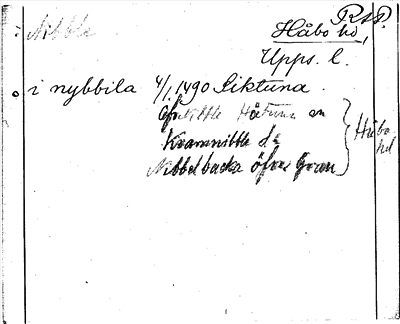 Nibble
Håbo hd, RAP.
Upps. l.
i nybbila 4/1 1490 Siktuna.
Håtuna sn
Kvarnnibble ds
Nibbelbacka öfver Gran
Håbo
hd